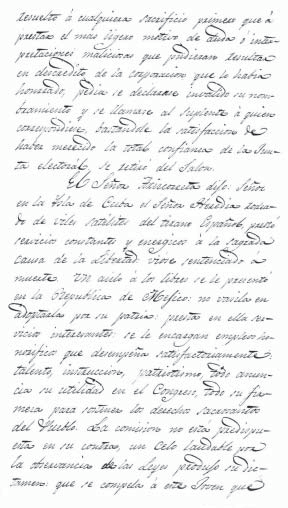 resuelto á cualquiera sacrificio primero que á
prestar el mas ligero motivo de duda ó inter
pretaciones maliciosas que pudieran resultar
en descredito de la corporacion que le habia
honrado, pedia se declarase invalido su nom-
bramiento y se llamase al suplente á quien
correspondiera, bastandole la satisfaccion de
haber merecido la total confianza de la Jun-
ta electoral, se retiró del Salon.
El Señor dijo: Señor
en la Isla de Cuba el Señor Heredia rodea-
do de viles satelites del tirano Español, prestó
servicios constantes y energicos á la sagrada
causa de la Libertad vióse sentenciado á
muerte. Un asilo á los libres se le presentó
en la Republica de Mejico: no vacila en
adoptarla por su patria: presta en ella ser-
vicios interesantes: se le encargan empleos ho-
norificos que desempeña satisfactoriamente:
talento, instruccion, patriotismo, todo anun-
cia su utilidad en el Congreso, todo su fir-
meza para sostener los derechos sacrosantos
del Pueblo. La comision no está predispu-
esta en su contra, un celo laudable por
la observancia de las Leyes produjo su dic-
tamen: que se compela á este Joven que